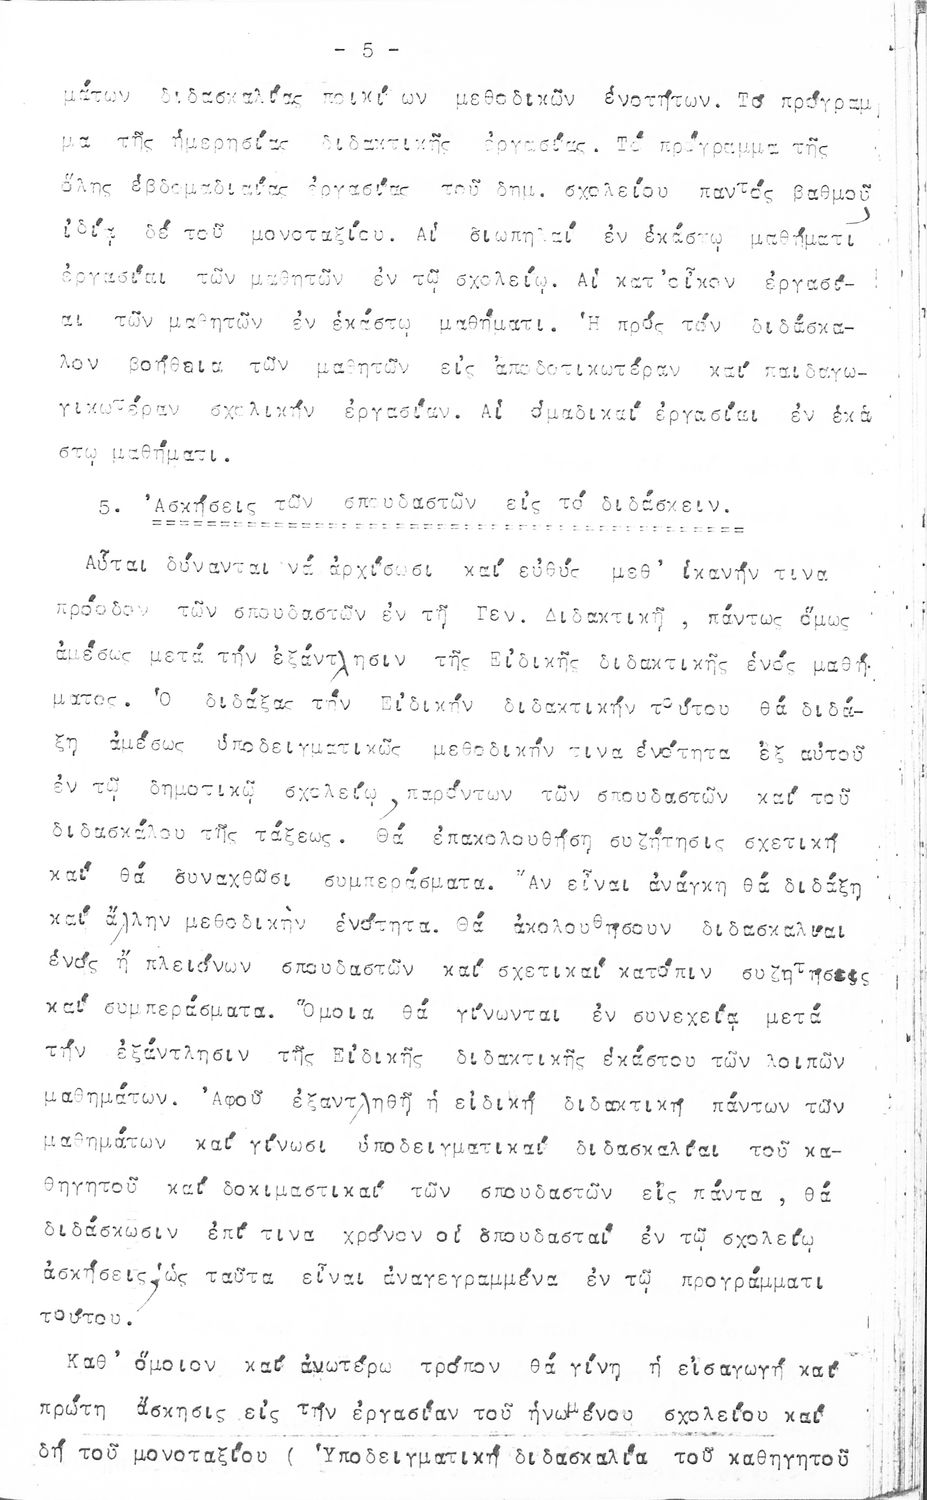 - 5 -
μάτων διδασκαλίας ποικί ων μεθοδικῶν ἑνοτήτων. Τό πρόγραμ
μα τῆς ἡμερησίας διδακτικῆς ἐργασίας. Τό πρόγραμμα τῆς
ὅλης ἑβδομαδιαίας ἐργασίας τοῦ δημ. σχολείου παντός βαθμοῦ
ἰδίᾳ δέ τοῦ μονοταξίου. Αἱ σιωπηλαί ἐν ἑκάστῳ μαθήματι
ἐργασίαι τῶν μαθητῶν ἐν τῷ σχολείῳ. Αἱ κατ'οἶκον ἐργασί-
αι τῶν μαθητῶν ἐν ἑκάστῳ μαθήματι. Ἡ πρός τόν διδάσκα-
λον βοήθεια τῶν μαθητῶν εἰς ἀποδοτικωτέραν καί παιδαγω-
γικωτέραν σχολικήν ἐργασίαν. Αἱ ὁμαδικαί ἐργασίαι ἐν ἑκά
στῳ μαθήματι.
5. Ἀσκήσεις τῶν σπουδαστῶν εἰς τό διδάσκειν.
Αὗται δύνανται νά ἀρχίσωσι καί εὐθύς μεθ' ἱκανήν τινα
πρόοδον τῶν σπουδαστῶν ἐν τῇ Γεν. Διδακτικῇ , πάντως ὅμως
ἀμέσως μετά τήν ἐξάντλησιν τῆς Εἰδικῆς διδακτικῆς ἑνός μαθή-
ματος. Ὁ διδάξας τήν Εἰδικήν διδακτικήν τούτου θά διδά-
ξῃ ἀμέσως ὑποδειγματικῶς μεθοδικήν τινα ἑνότητα ἐξ αὐτοῦ
ἐν τῷ δημοτικῷ σχολείῳ , παρόντων τῶν σπουδαστῶν καί τοῦ
διδασκάλου τῆς τάξεως. Θά ἐπακολουθήσῃ συζήτησις σχετική
καί θά συναχθῶσι συμπεράσματα. Ἄν εἶναι ἀνάγκη θά διδάξῃ
καί ἄλλην μεθοδικὴν ἑνότητα. Θά ἀκολουθήσουν διδασκαλίαι
ἑνός ἤ πλειόνων σπουδαστῶν καί σχετικαί κατόπιν συζητήσεις
καί συμπεράσματα. Ὅμοια θά γίνωνται ἐν συνεχείᾳ μετά
τήν ἐξάντλησιν τῆς Εἰδικῆς διδακτικῆς ἑκάστου τῶν λοιπῶν
μαθημάτων. Ἀφοῦ ἐξαντληθῇ ἡ εἰδική διδακτική πάντων τῶν
μαθημάτων καί γίνωσι ὑποδειγματικαί διδασκαλίαι τοῦ κα-
θηγητοῦ καί δοκιμαστικαί τῶν σπουδαστῶν εἰς πάντα , θά
διδάσκωσιν ἐπί τινα χρόνον οἱ σπουδασταί ἐν τῷ σχολείῳ
ἀσκήσεις, ὡς ταῦτα εἶναι ἀναγεγραμμένα ἐν τῷ προγράμματι
τούτου.
Καθ' ὅμοιον καί ἀνωτέρω τρόπον θά γίνῃ ἡ εἰσαγωγή καί
πρώτη ἄσκησις εἰς τήν ἐργασίαν τοῦ ἡνωμένου σχολείου καί
δή τοῦ μονοταξίου ( Ὑποδειγματική διδασκαλία τοῦ καθηγητοῦ